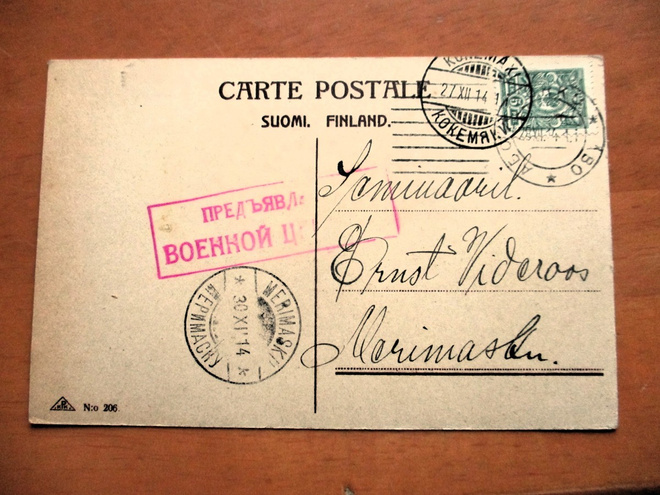 CARTE POSTALE
SUOMI. FINLAND.
KOKEMÄKI
27 XII 14
КЮКЕМЯКИ
ПРЕДЪЯВЛ
ВОЕННОЙ Ц
Seminaaril.
Ernst Videroos
Merimasku.
MERIMASKU
30 XII 14
МЕРИМАСКУ
N:o 206